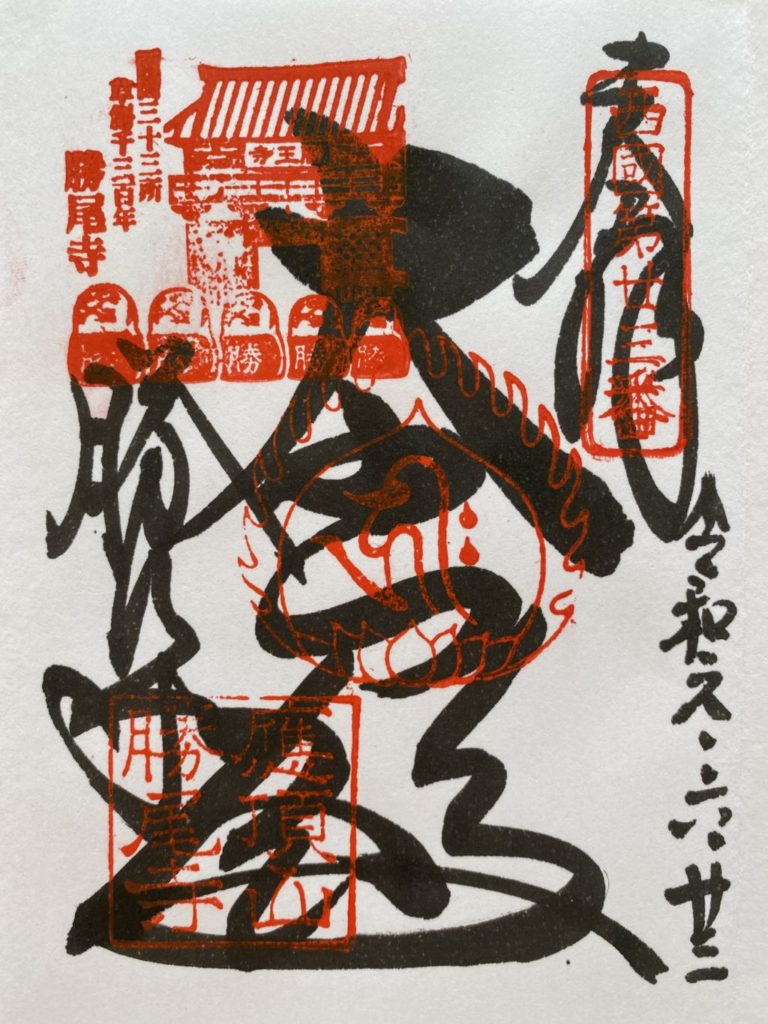 奉拝
西國第廿三番
令和元・六・廿二
大悲殿
應頂山
勝尾寺
勝尾寺
西国三十三所
草創千三百年
勝尾寺
勝 勝 勝